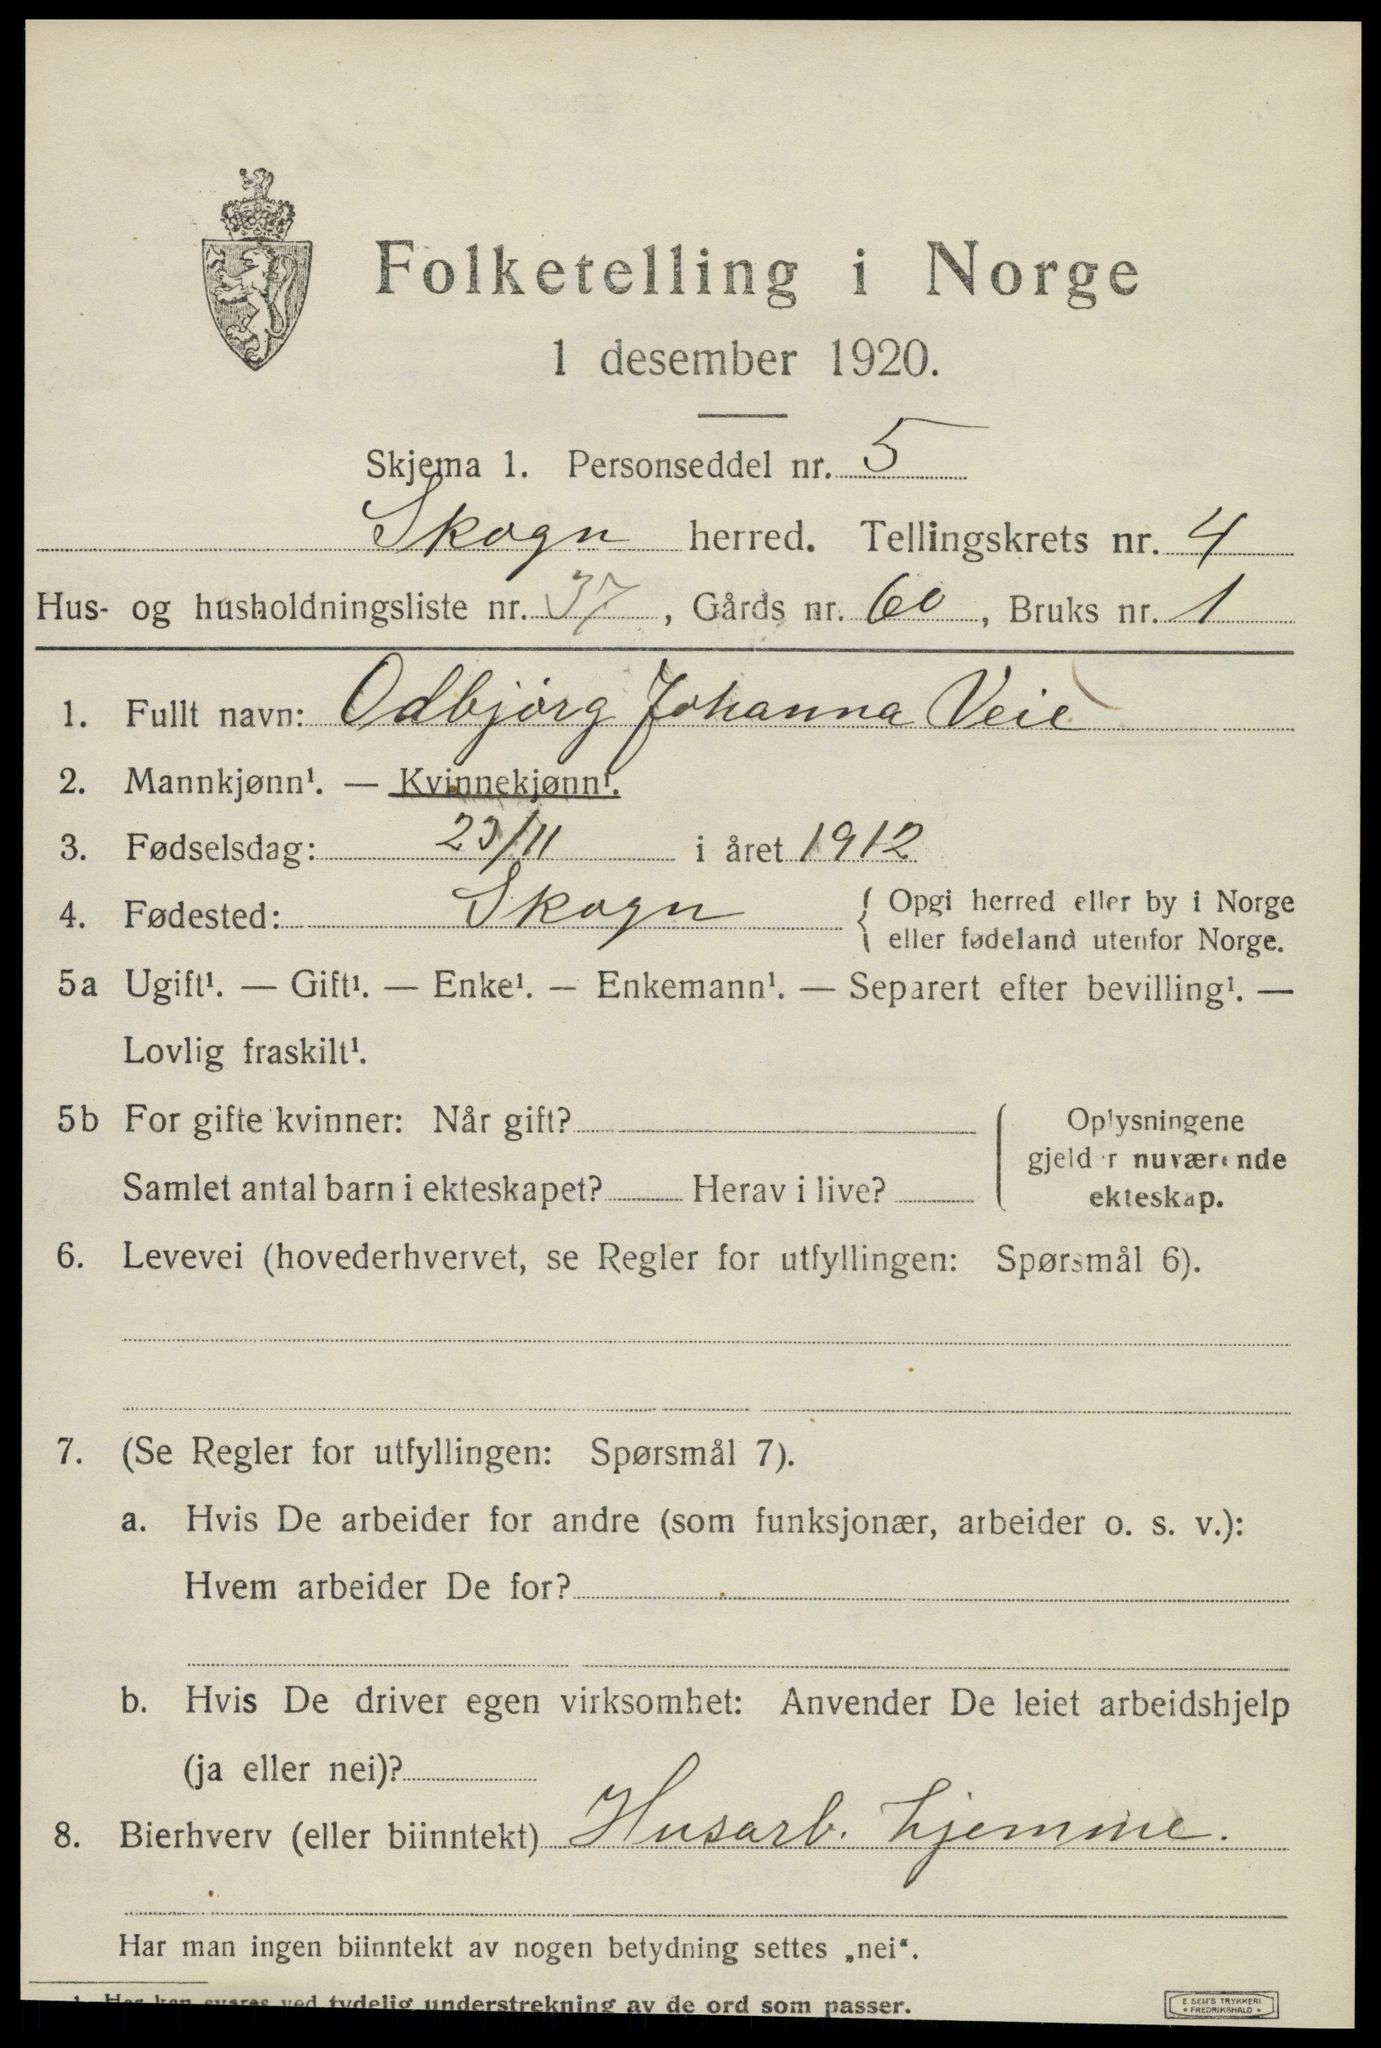 Folketelling i Norge
1 desember 1920.
Skjema 1. Personseddel nr. 5
Skogn herred. Tellingskrets nr. 4
Hus- og husholdningsliste nr. 37, Gårds nr. 60, Bruks nr. 1
1. Fullt navn: Odbjørg Johanna Veie
2. Mannkjønn¹. — Kvinnekjønn¹.
3. Fødselsdag: 23/11 i året 1912
4. Fødested: Skogn { Opgi herred eller by i Norge
eller fødeland utenfor Norge.
5a Ugift¹. — Gift¹. — Enke¹. — Enkemann¹. — Separert efter bevilling¹. —
Lovlig fraskilt¹.
5b For gifte kvinner: Når gift?
Samlet antal barn i ekteskapet? Herav i live?
Oplysningene
gjelder nuværende
ekteskap.
6. Levevei (hovederhvervet, se Regler for utfyllingen: Spørsmål 6).
7. (Se Regler for utfyllingen: Spørsmål 7).
a. Hvis De arbeider for andre (som funksjonær, arbeider o. s. v.):
Hvem arbeider De for?
b. Hvis De driver egen virksomhet: Anvender De leiet arbeidshjelp
(ja eller nei)?
8. Bierhverv (eller biinntekt) Husarb. hjemme.
Har man ingen biinntekt av nogen betydning settes „nei“.
1 Her kan svares ved tydelig understrekning av de ord som passer.
E. SEM'S TRYKKERI
FREDRIKSHALD